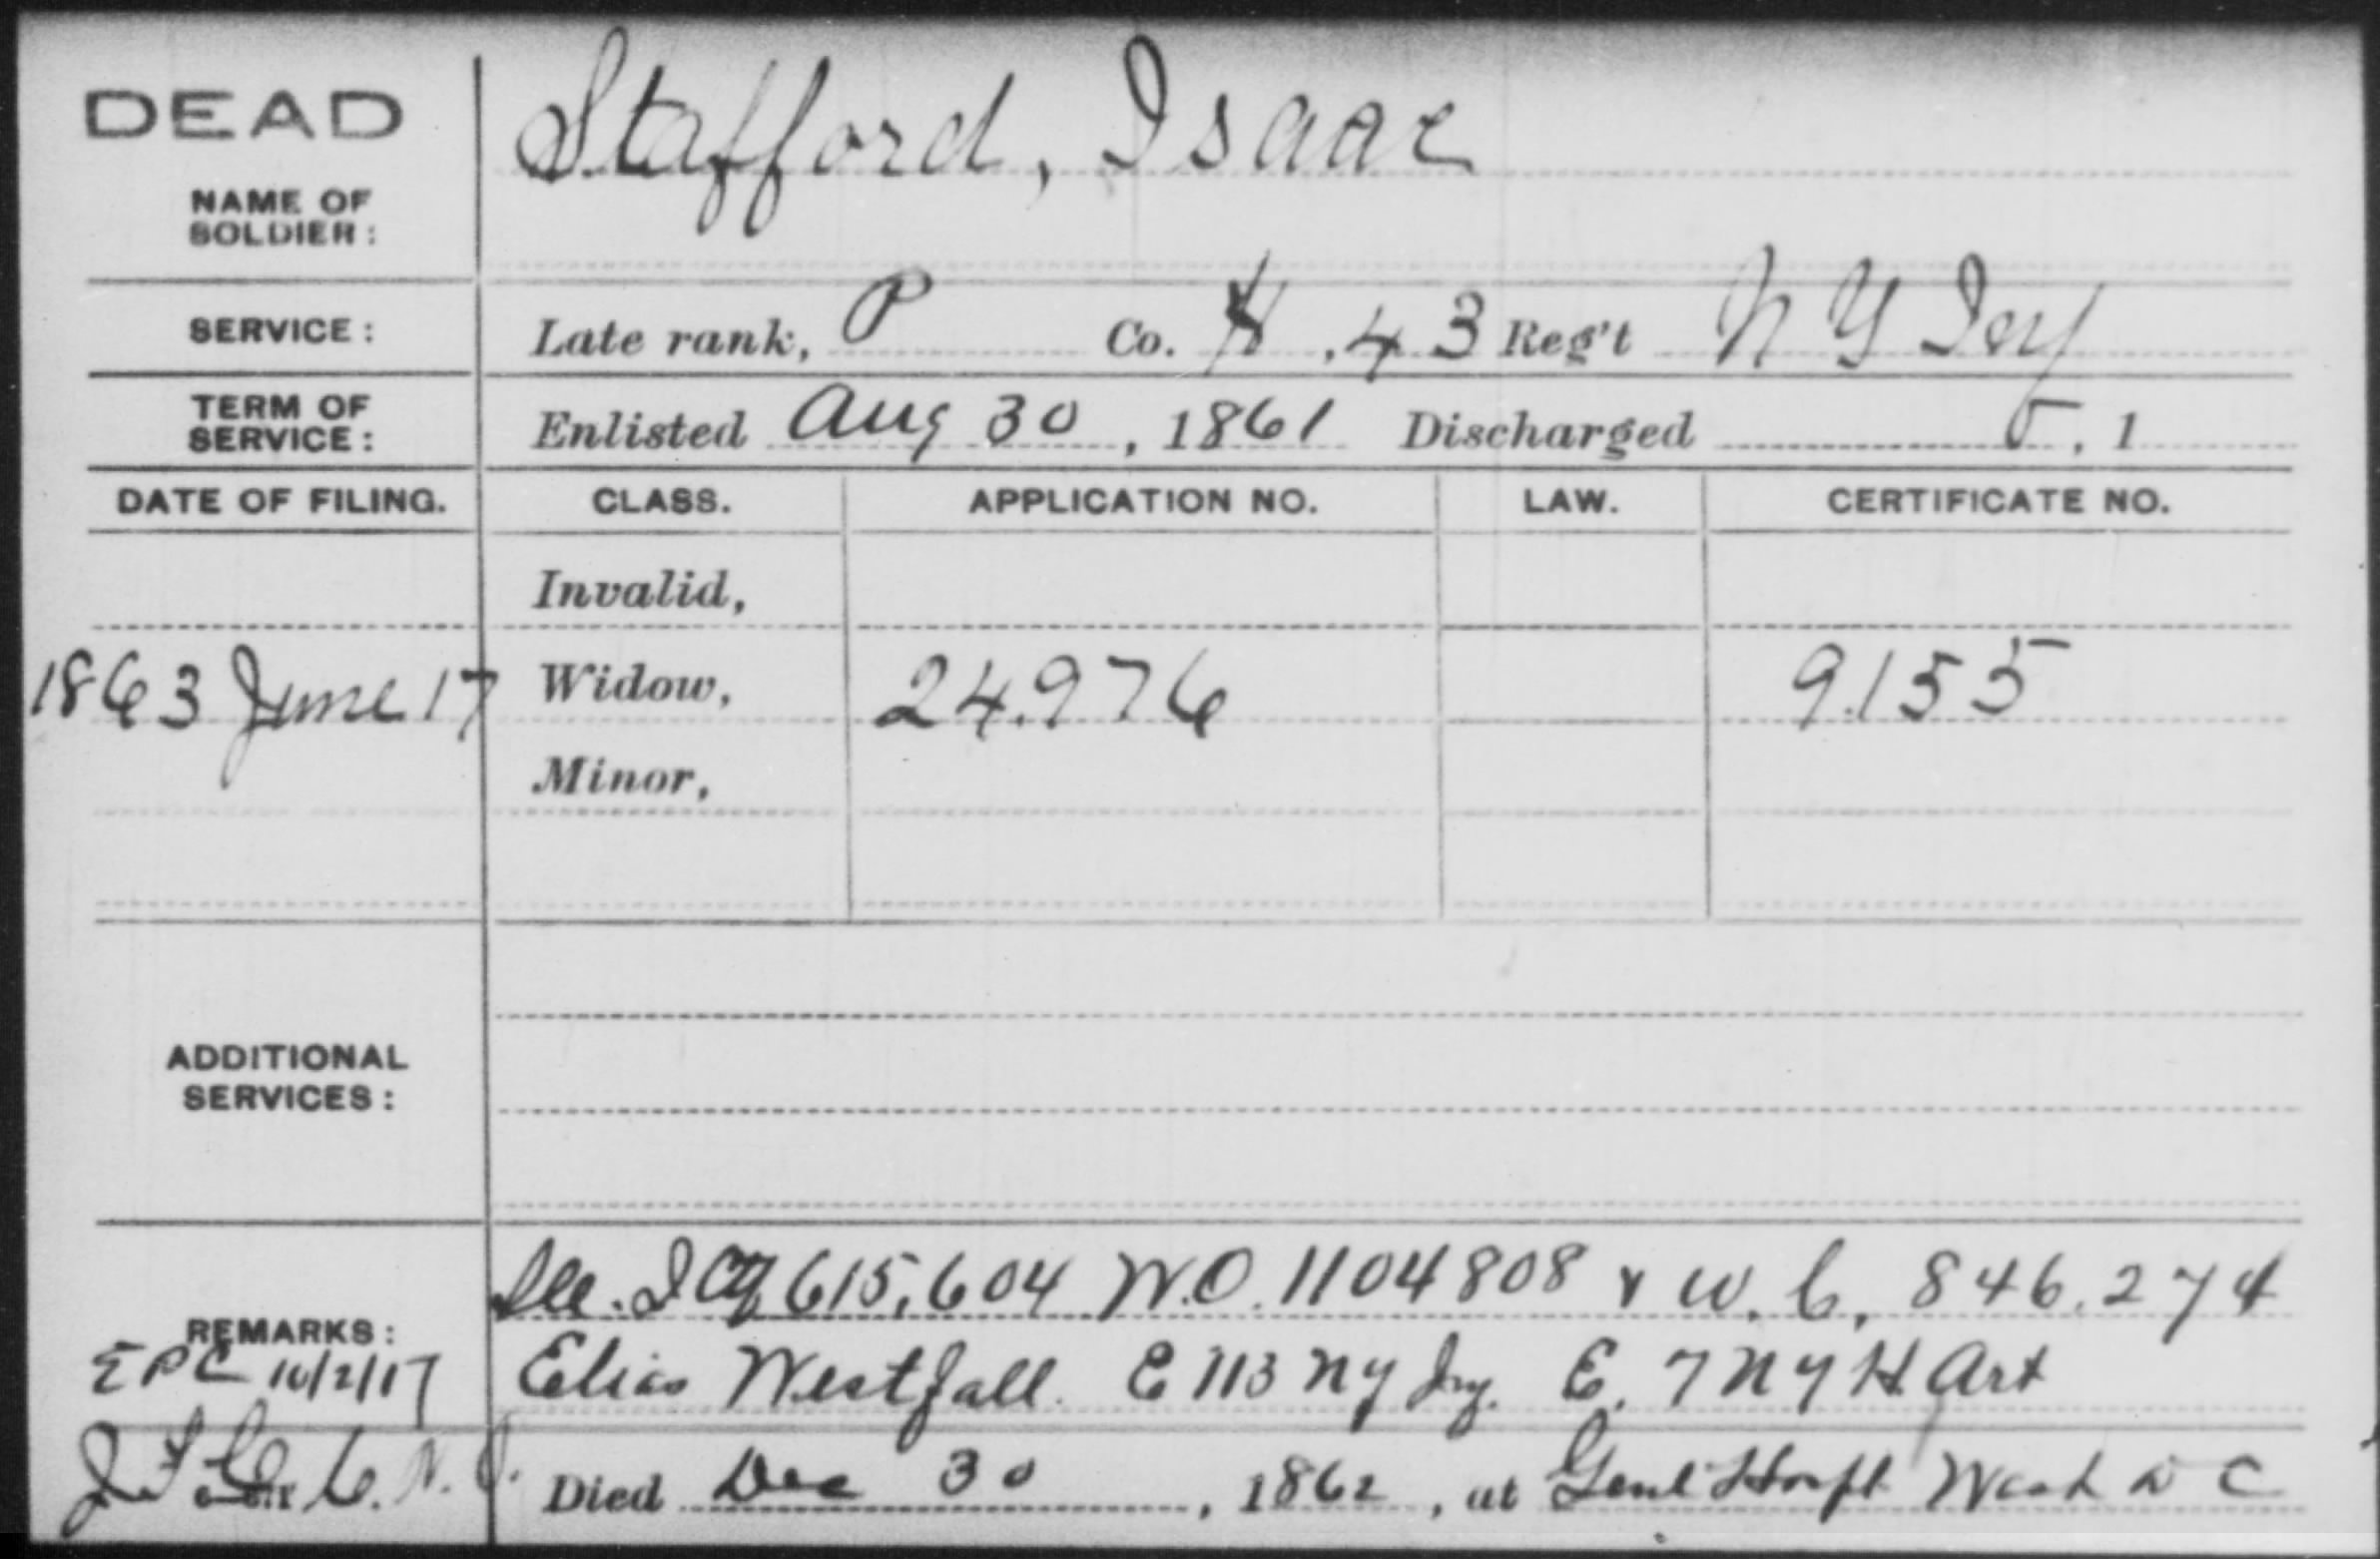 DEAD
Stafford, Isaac
NAME OF
SOLDIER:
SERVICE: Late rank, P Co. H, 43 Reg't N Y Inf
TERM OF
SERVICE: Enlisted Aug 30, 1861 Discharged , 1
DATE OF FILING. CLASS. APPLICATION NO. LAW. CERTIFICATE NO.
Invalid,
1863 June 17 Widow, 24.976 9.155
Minor,
ADDITIONAL
SERVICES:
See. 615,604 W.O. 1104808 & W. C. 846.274
REMARKS:
EPC 10/2/17 Elias Westfall. E 113 NY Inf. E. 7 NY H Art
Died Dec 30, 1862, at Genl Hospt Wash D C